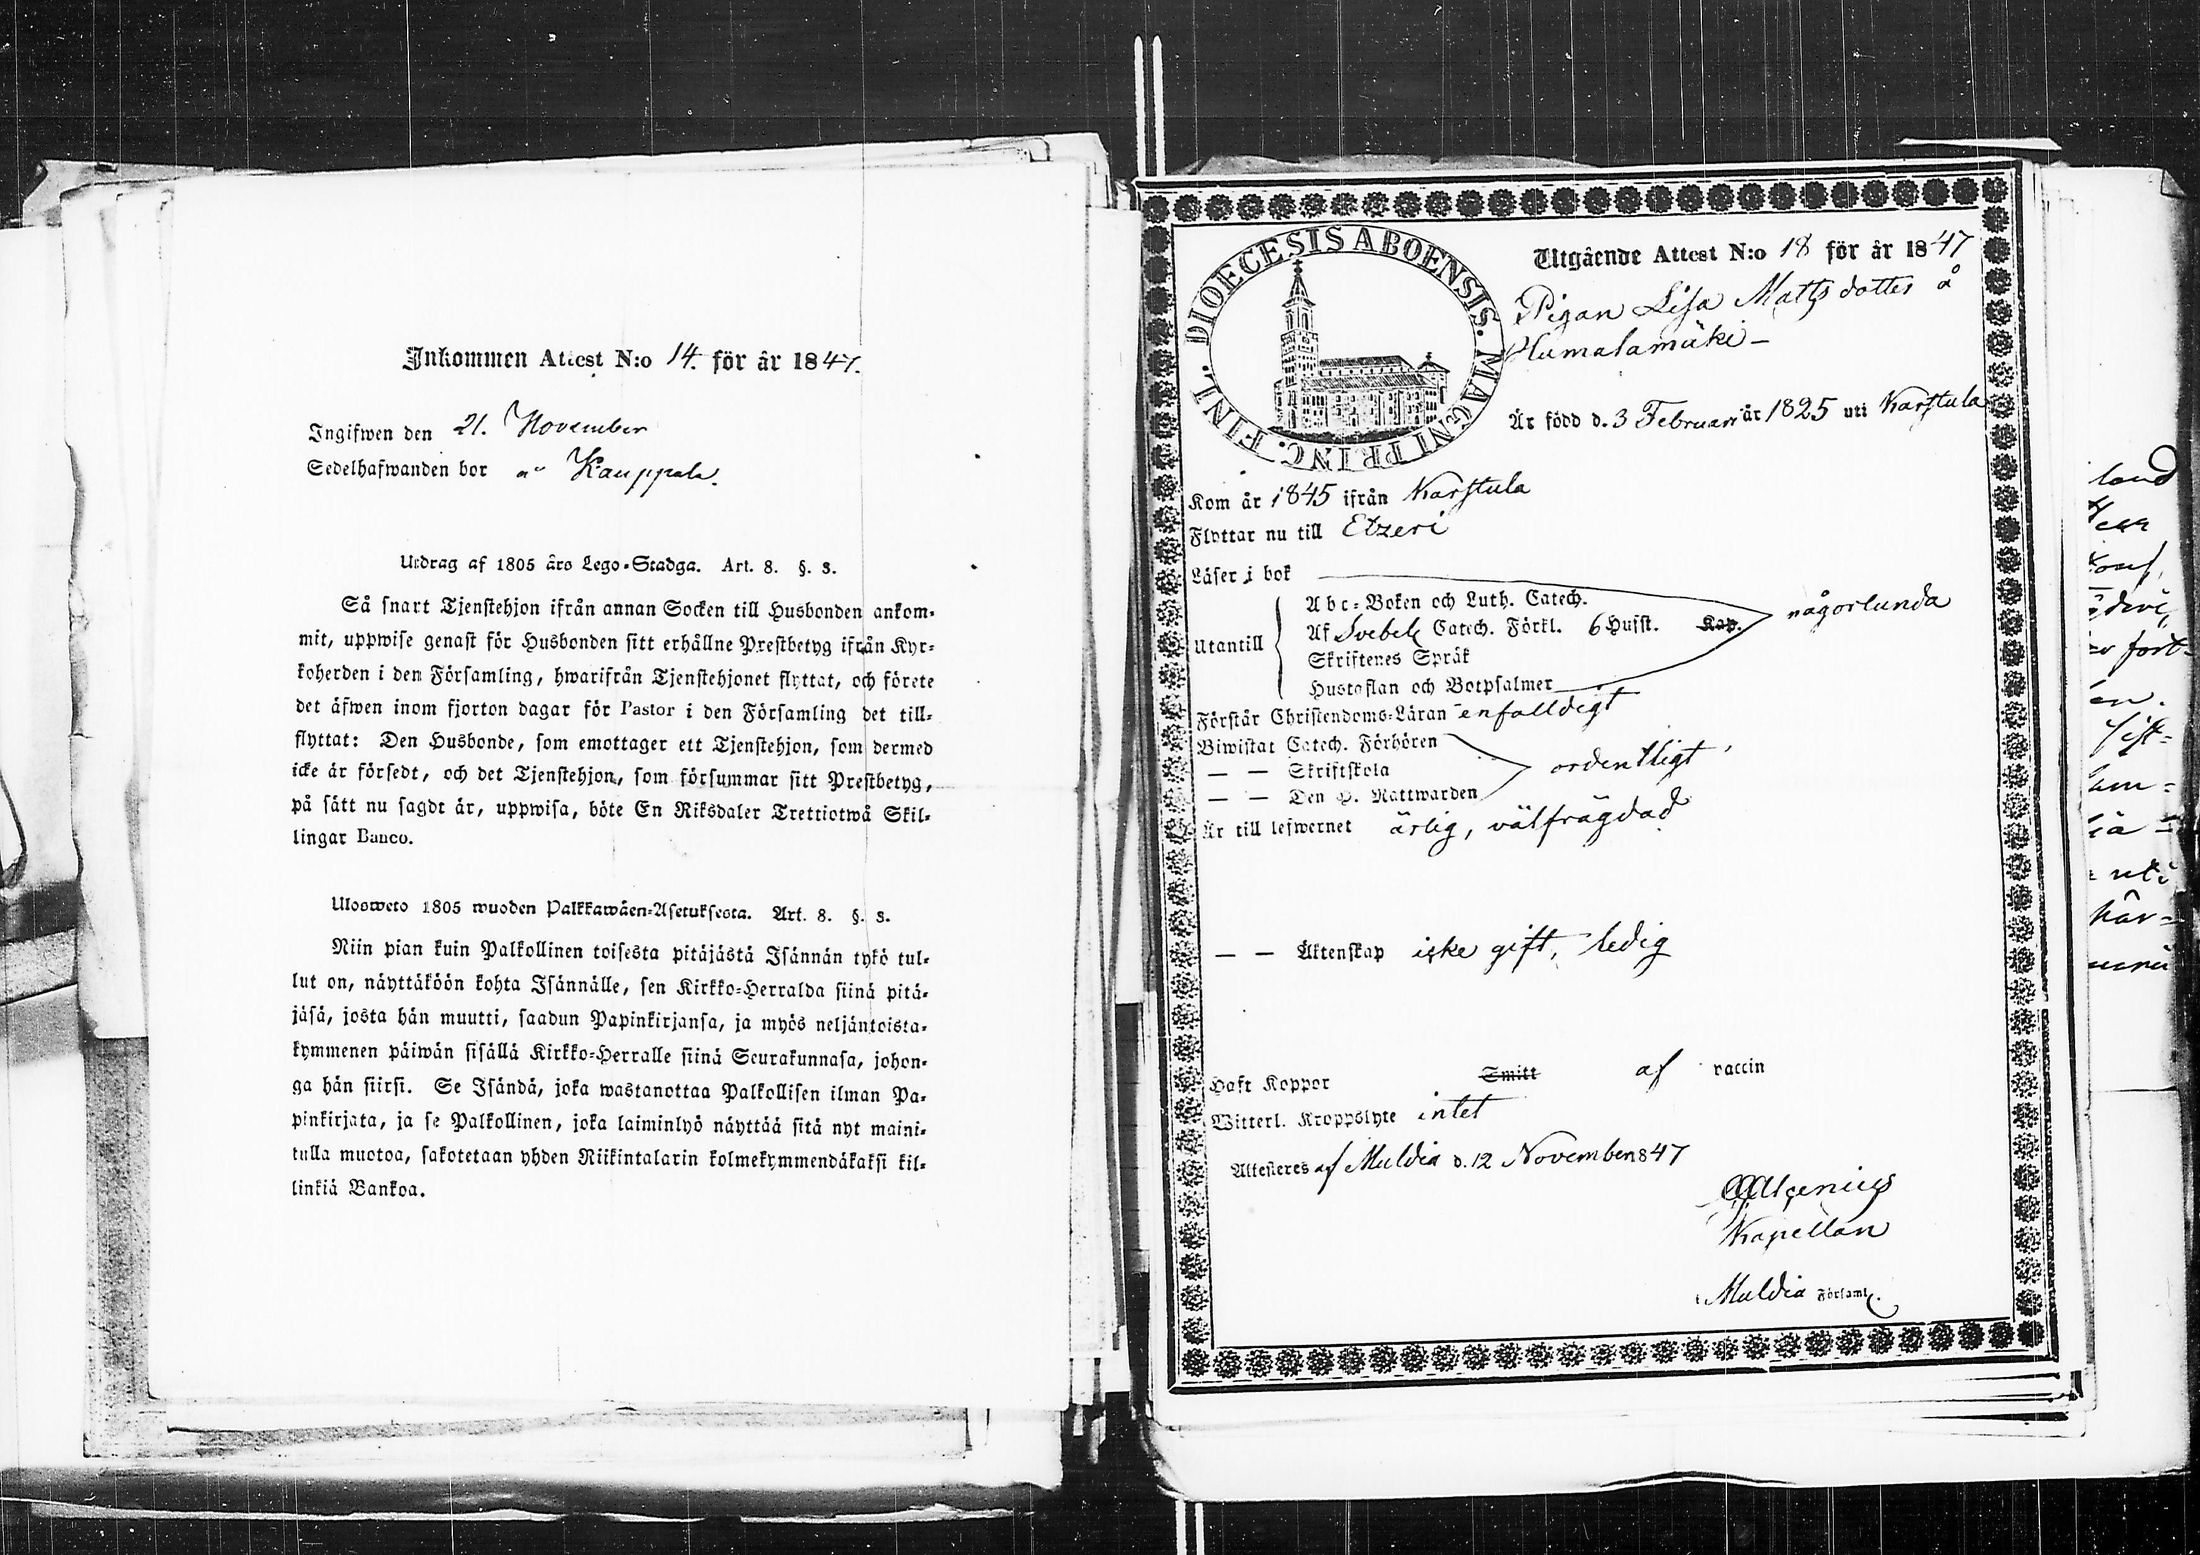 Inkommen Attest N:o 14. för år 1847.
Ingifwen den 21. November
Sedelhafwanden bor å Kauppala.
Utdrag af 1805 års Lego-Stadga. Art. 8. §. 3.
Så snart Tjenstehjon ifrån annan Socken till Husbonden ankom-
mit, uppwise genast för Husbonden sitt erhållne Prestbetyg ifrån Kyr-
koherden i den Församling, hwarifrån Tjenstehjonet flyttat, och förete
det äfwen inom fjorton dagar för Pastor i den Församling det till-
flyttat: Den Husbonde, som emottager ett Tjenstehjon, som dermed
icke är försedt, och det Tjenstehjon, som försummar sitt Prestbetyg,
på sätt nu sagdt är, uppwisa, böte En Riksdaler Trettiotwå Skil-
lingar Banco.
Ulosweto 1805 wuoden Palkkawäen-Asetuksesta. Art. 8. §. 3.
Niin pian kuin Palkollinen toisesta pitäjästä Isännän tykö tul-
lut on, näyttäköön kohta Isännälle, sen Kirkko-Herralda siinä pitä-
jäsä, josta hän muutti, saadun Papinkirjansa, ja myös neljäntoista-
kymmenen päiwän sisällä Kirkko-Herralle siinä Seurakunnasa, johon-
ga hän siirsi. Se Isändä, joka wastanottaa Palkollisen ilman Pa-
pinkirjata, ja se Palkollinen, joka laiminlyö näyttää sitä nyt maini-
tulla muotoa, sakotetaan yhden Riikintalarin kolmekymmendäkaksi kil-
linkiä Bankoa.
DIOECESIS ABOENSIS. MAGNI PRINC. FINL.
Utgående Attest N:o 18 för år 1847
Pigan Lisa Matts dotter å
Humalamäki -
Är född d. 3 Februari år 1825 uti Karstula
Kom år 1845 ifrån Karstula
Flyttar nu till Etzeri
Läser i bok
Abc-Boken och Luth. Catech.
någorlunda
Utantill Af Svebel. Catech. Förkl. 6 Husst. Kap.
Skriftenes Språk
Hustaflan och Botpsalmer
Förstår Christendoms-Läran enfalldigt
Biwistat Catech. Förhören
— — Skriftskola ordentligt
— — Den H. Nattwarden
Är till lefwernet ärlig, välfrägdad
— — Äktenskap icke gift, ledig
Haft Koppor Smitt af vaccin
Witterl. Kroppslyte intet
Attesteres af Muldia d. 12 November 1847
Kapellan
i Muldia Församl.
land
fort-
en.
uti
här-